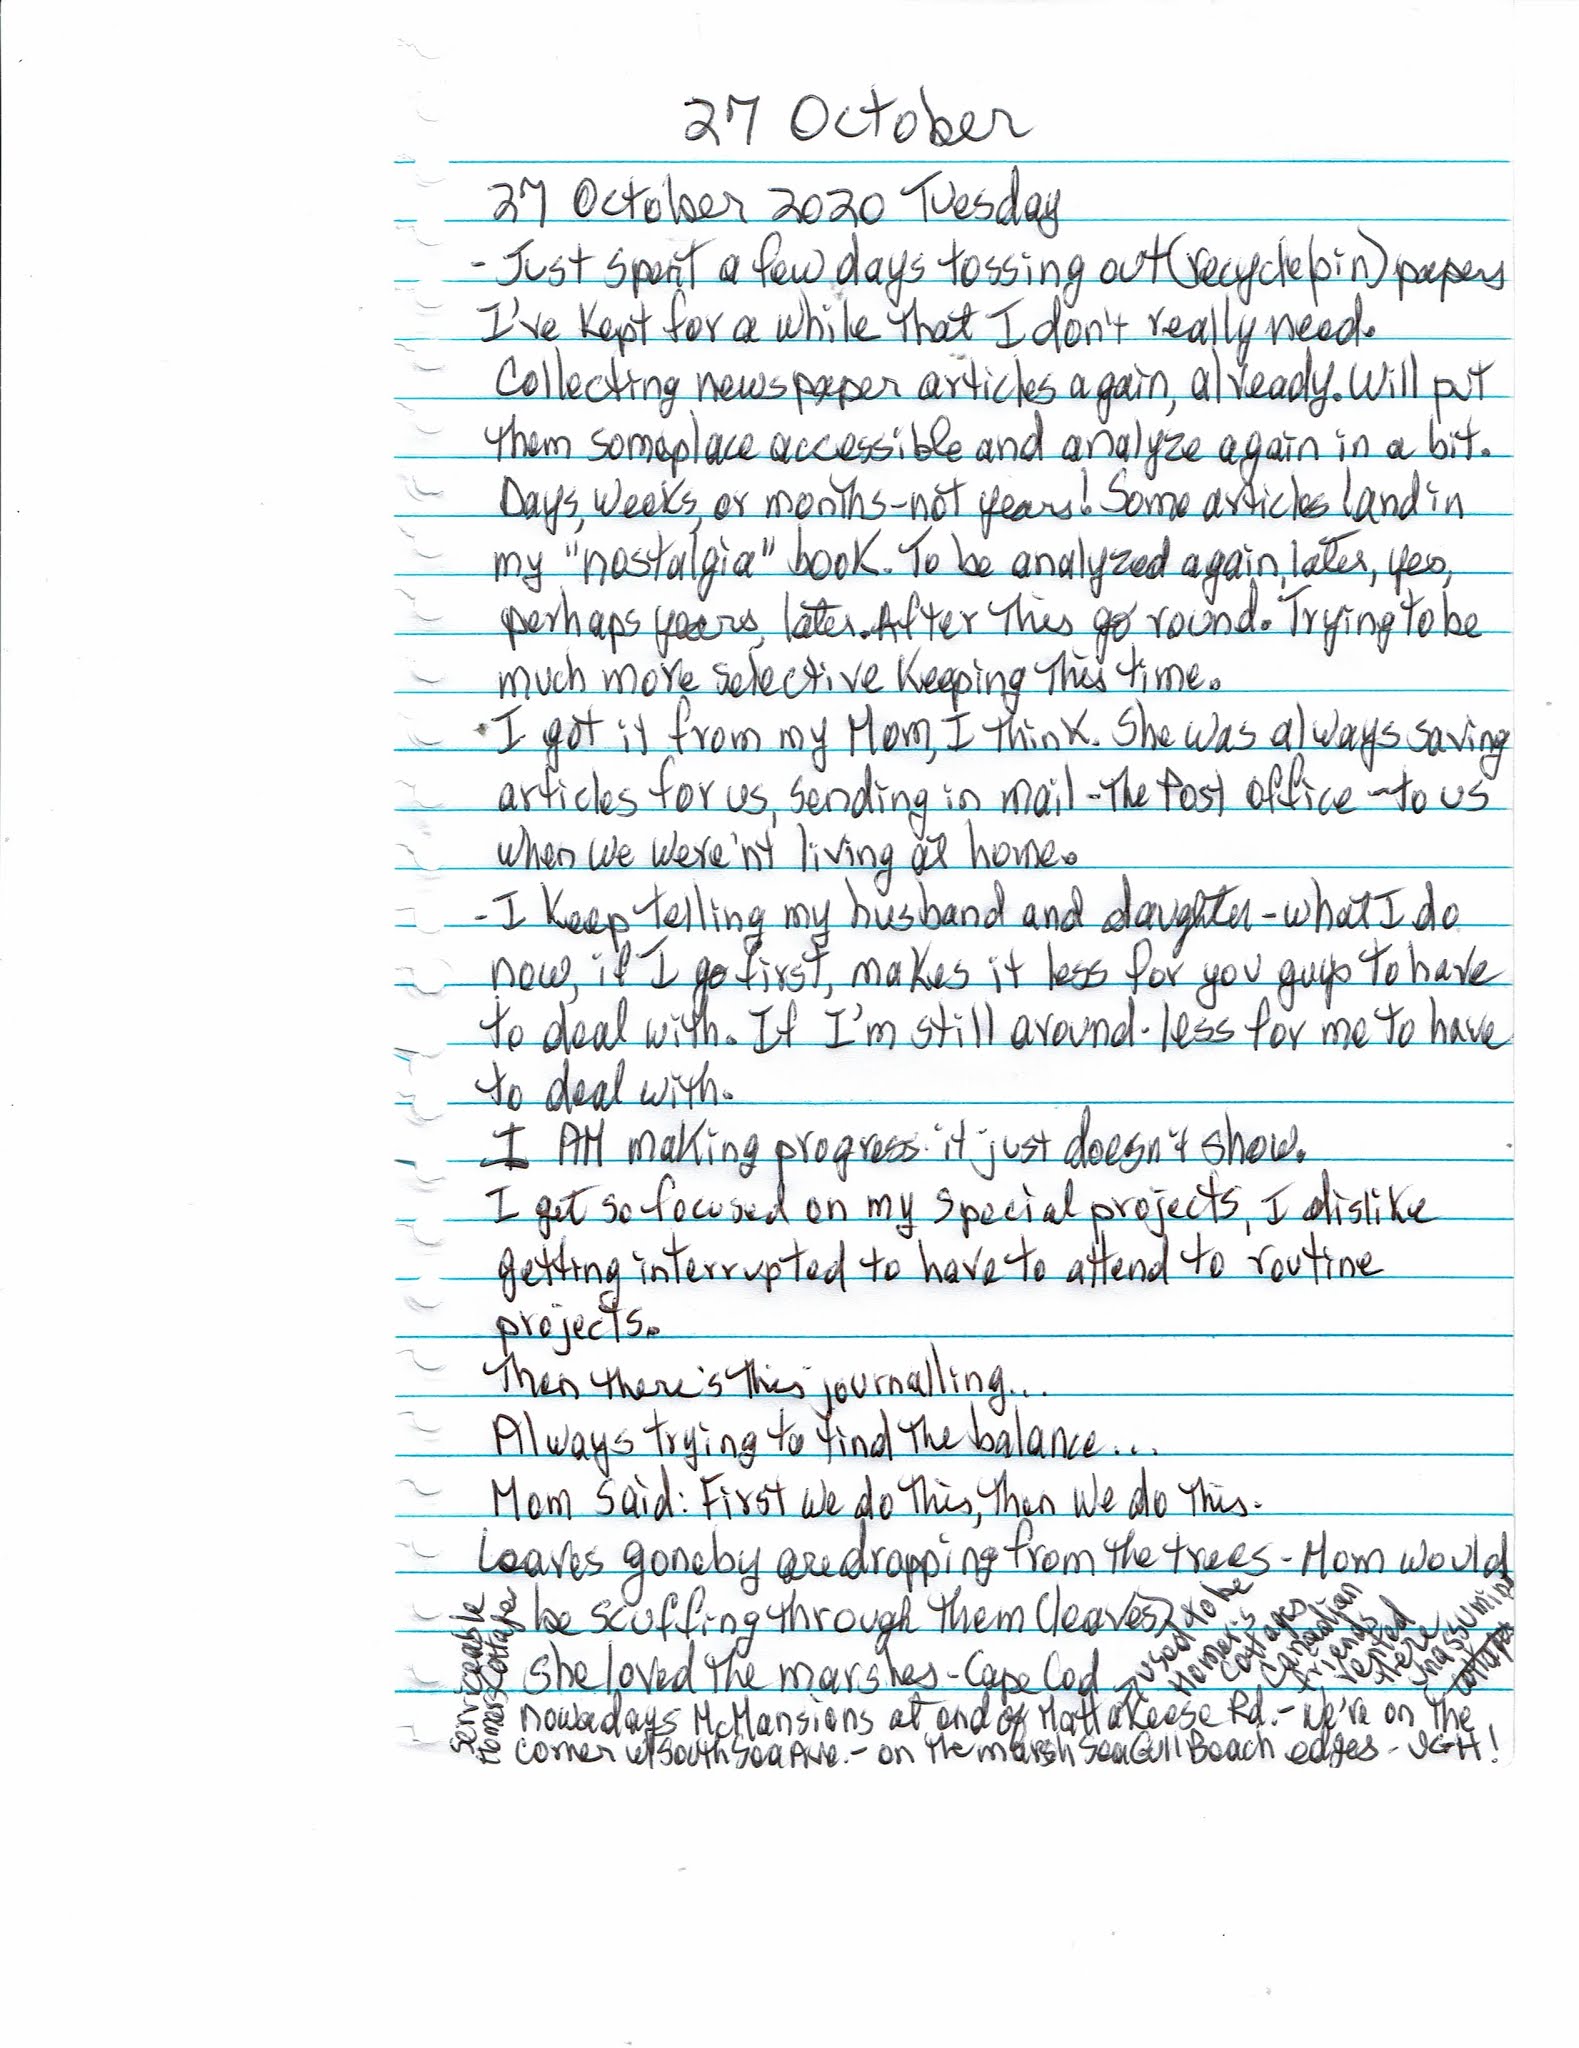 27 October
27 October 2020 Tuesday
- Just spent a few days tossing out (recycle bin) papers
I've kept for a while that I don't really need.
Collecting newspaper articles again, already. Will put
them someplace accessible and analyze again in a bit.
Days, weeks, or months - not years! Some articles land in
my "nostalgia" book. To be analyzed again, later, yes,
perhaps years, later. After this go round. Trying to be
much more selective keeping this time.
- I got it from my Mom, I think. She was always saving
articles for us, sending in mail - the Post Office - to us
when we were'nt living at home.
- I keep telling my husband and daughter - what I do
now, if I go first, makes it less for you guys to have
to deal with. If I'm still around - less for me to have
to deal with.
I AM making progress - it just doesn't show.
I get so focused on my special projects, I dislike
getting interrupted to have to attend to routine
projects.
Then there's this journalling...
Always trying to find the balance...
Mom said: First we do this, then we do this.
Leaves goneby are dropping from the trees - Mom would
be scuffing through them (leaves)
She loved the marshes - Cape Cod
Nowadays McMansions at end of Mattakeese Rd. - We're on the
corner w/ South Sea Ave. - on the marsh Sea Gull Beach edges - UGH!
used to be
Homer's
Cottages
Canadian
friends
rented
there
unassuming
cottages
Serviceable
Homers Cottages